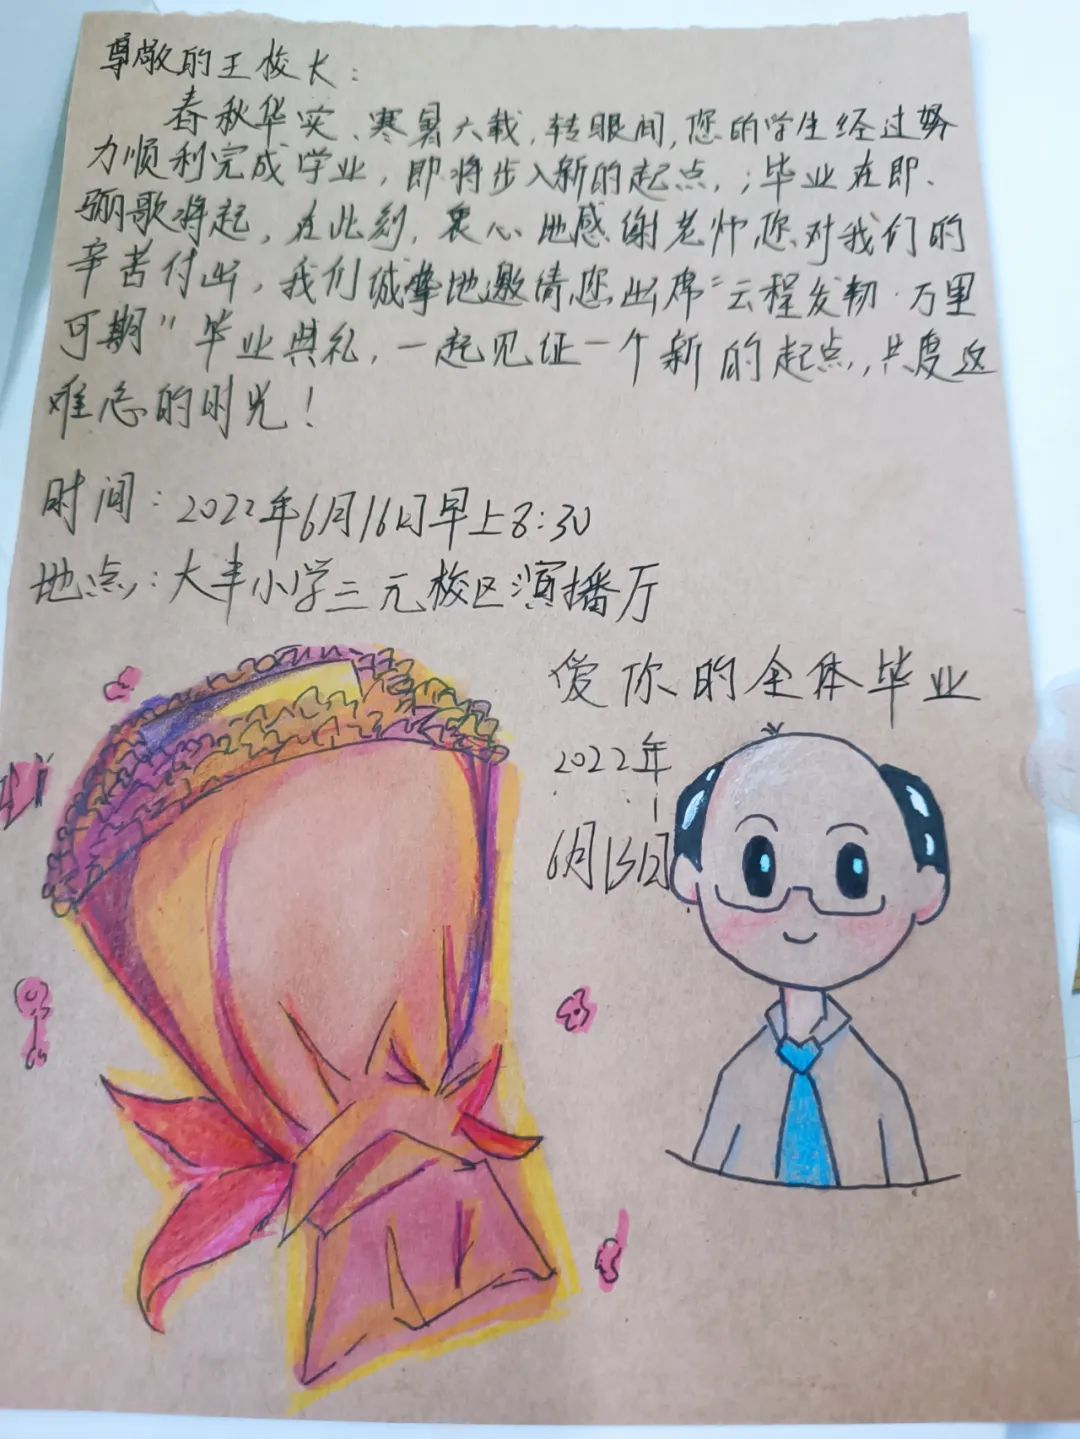 尊敬的王校长：
春秋华实、寒暑六载，转眼间，您的学生经过努
力顺利完成学业，即将步入新的起点，；毕业在即、
骊歌将起，在此刻，衷心地感谢老师，您对我们的
辛苦付出，我们诚挚地邀请您出席“云程发轫·万里
可期”毕业典礼，一起见证一个新的起点，，共度这
难忘的时光！
时间：2022年6月16日早上8:30
地点：大丰小学三元校区演播厅
爱你的全体毕业
2022年
6月15日